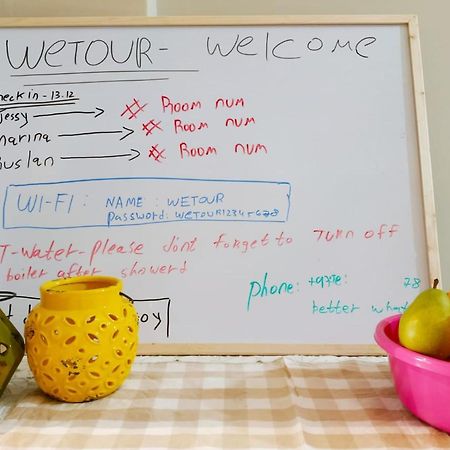 WETOUR- welcome
check in - 13.12
jessy → # Room num
marina → # Room num
Ruslan → # Room num
WI-FI : NAME : WETOUR
password: WETOUR12345678
T-water-please don't forget to Turn off
boiler after showerd
phone: 78
better what
oy